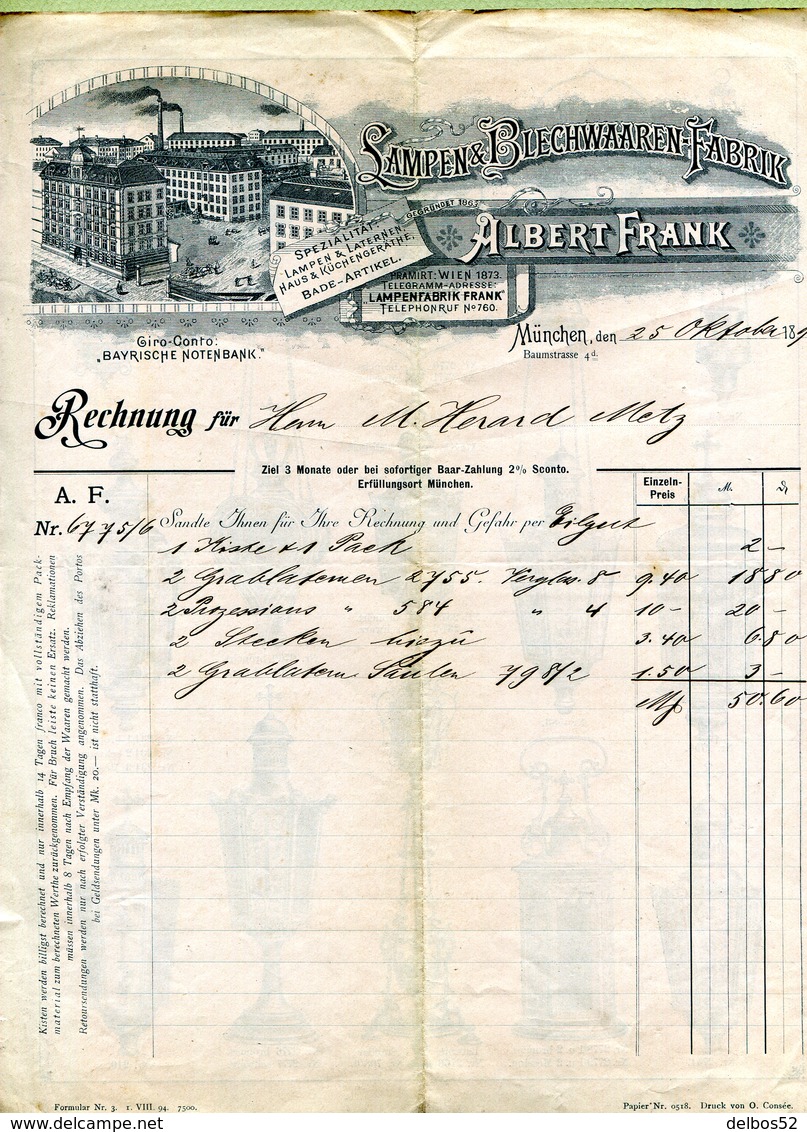 LAMPEN & BLECHWAAREN-FABRIK
GEGRÜNDET 1863
ALBERT FRANK
SPEZIALITÄT:
LAMPEN & LATERNEN,
HAUS & KÜCHENGERÄTHE,
BADE-ARTIKEL.
PRÄMIRT: WIEN 1873.
TELEGRAMM-ADRESSE:
"LAMPENFABRIK FRANK"
TELEPHONRUF No 760.
Giro-Conto:
"BAYRISCHE NOTENBANK."
München, den 25 Oktober 189
Baumstrasse 4d.
Rechnung für Herrn M. Herard Metz
Ziel 3 Monate oder bei sofortiger Baar-Zahlung 2% Sconto.
Erfüllungsort München.
Einzeln-Preis M. ₰
A. F.
Nr. 6775/6 Sandte Ihnen für Ihre Rechnung und Gefahr per Eilgut
1 Kiste & 1 Pack 2 –
2 Grablaternen 2755. Verglas. 8 9.40 18 80
2 Prozessions " 584 " 4 10 – 20 –
2 Stecken hiezu 3.40 6.80
2 Grablatern Säulen 798/2 1.50 3 –
Mk 50.60
Kisten werden billigst berechnet und nur innerhalb 14 Tagen franco mit vollständigem Pack-
material zum berechneten Werthe zurückgenommen. Für Bruch leiste keinen Ersatz. Reklamationen
müssen innerhalb 8 Tagen nach Empfang der Waaren gemacht werden.
Retoursendungen werden nur nach erfolgter Verständigung angenommen. Das Abziehen des Portos
bei Geldsendungen unter Mk. 20.— ist nicht statthaft.
Formular Nr. 3. 1. VIII. 94. 7500.
Papier Nr. 0518. Druck von O. Consée.
delbos52